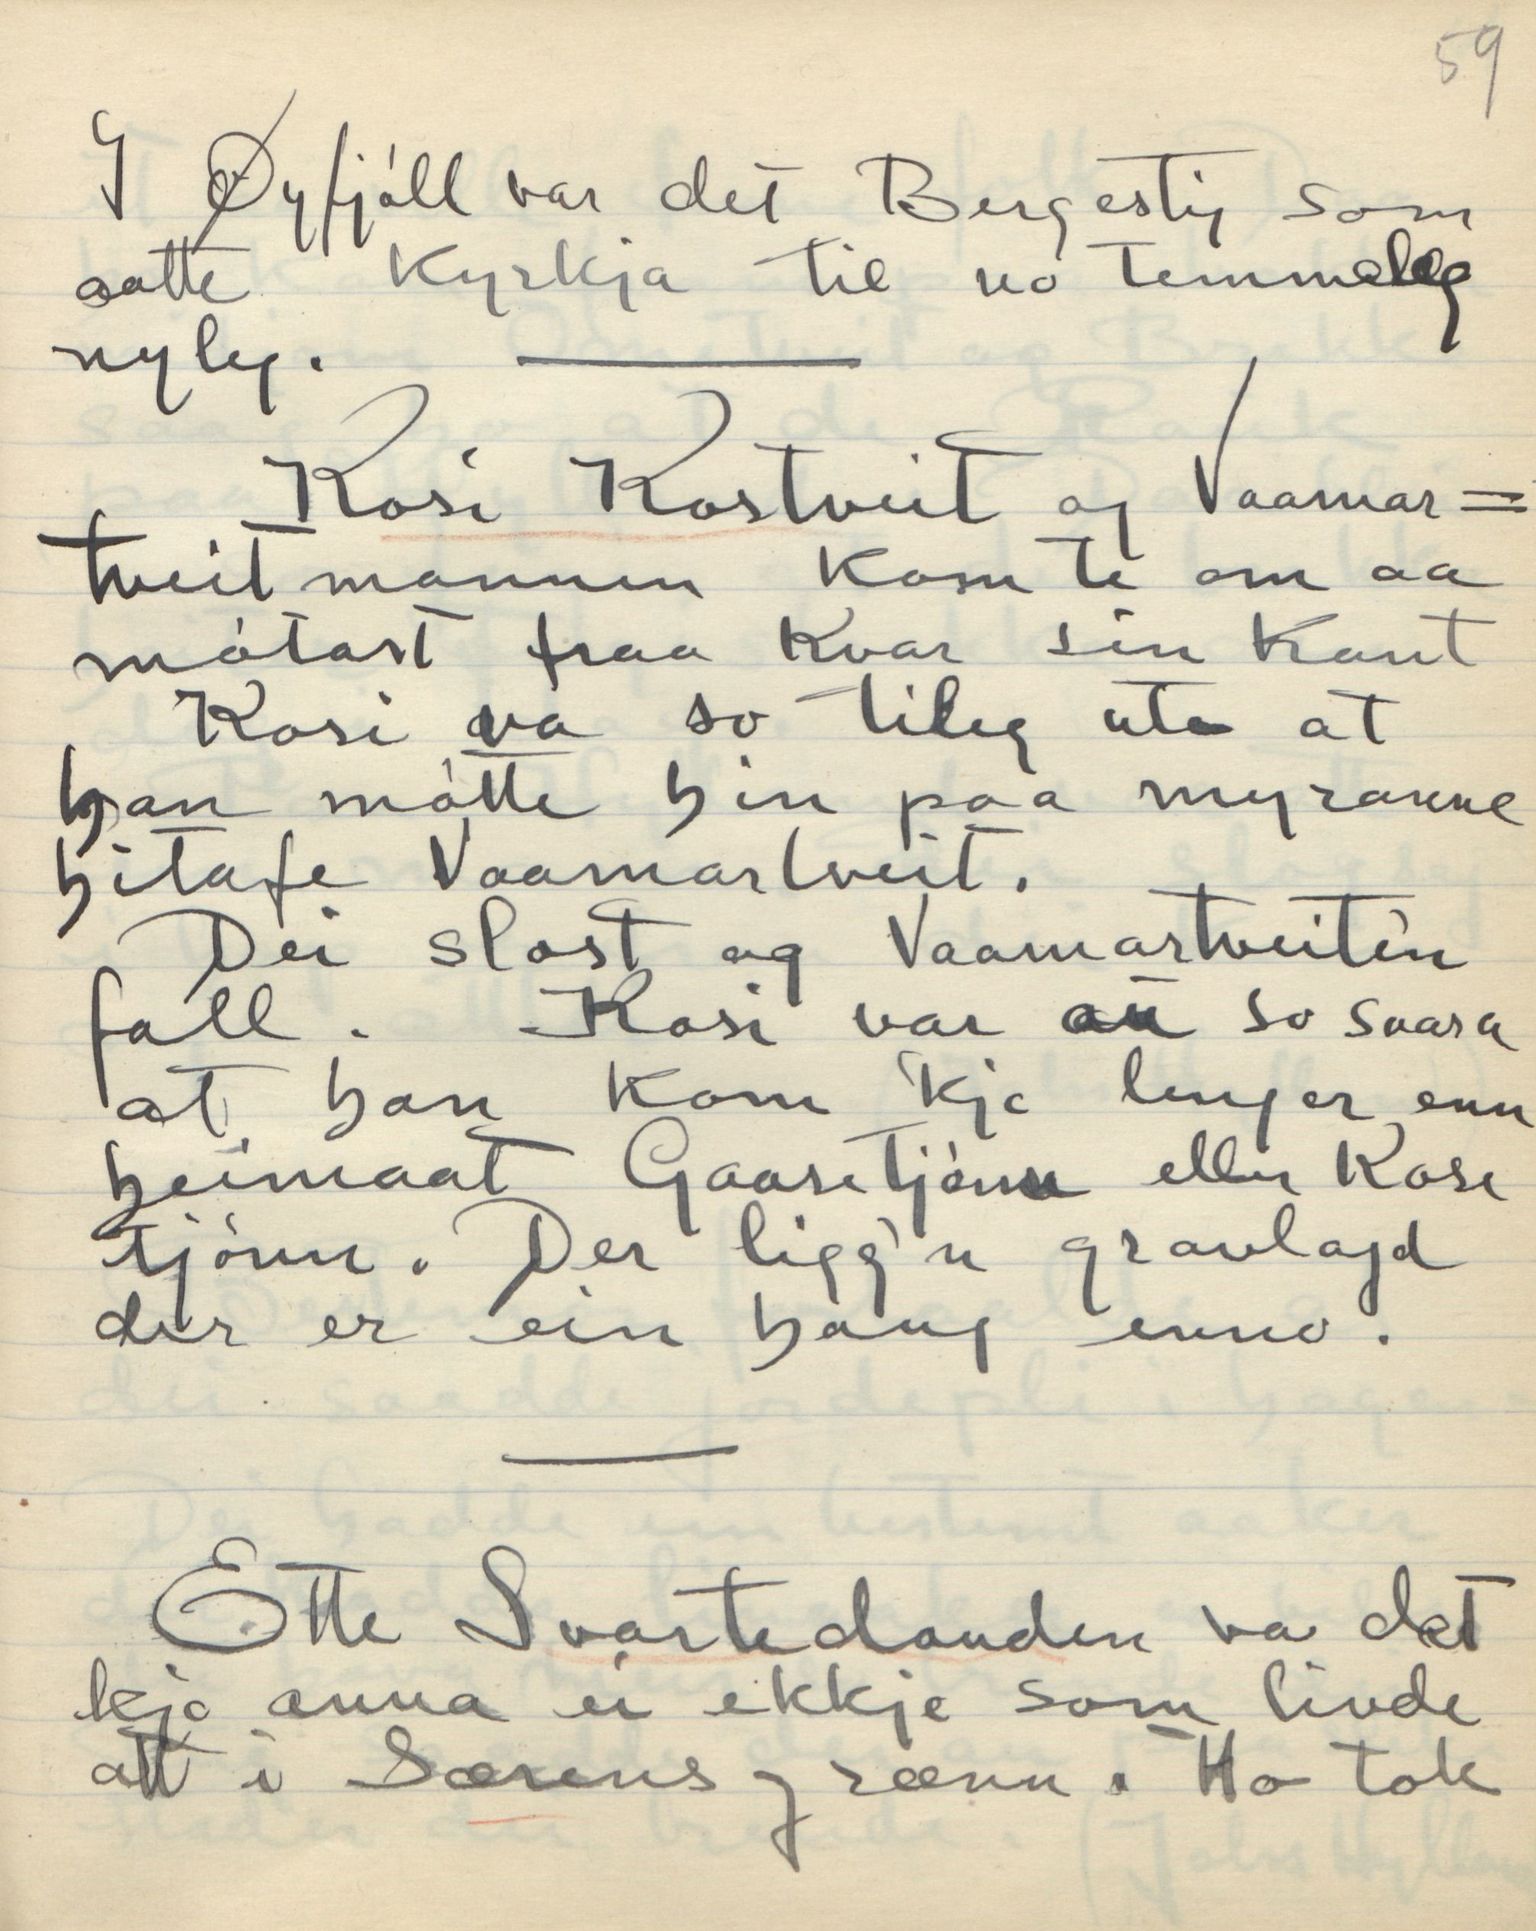 59
I Øyfjóll var det Bergestig som
sótte Kyrkja til no temmeleg
nyleg.
Kosi Kostveit og Vaamar=
tveitmannen kom te om aa
mótast fraa kvar sin kant
Kosi va so tileg ute at
han mótte hin paa myranne
hitafe Vaamartveit.
Dei slost og Vaamartveit'n
fall. Kosi var au so saara
at han kom 'kje lenger enn
heimaat Gaasetjónn eller Kose
tjónn. Der ligg'n gravlagd
der er ein haug enno.
Ette Svartedauden va det
kje anna ei ekkje som livde
att i Særensgrænn. Ho tok